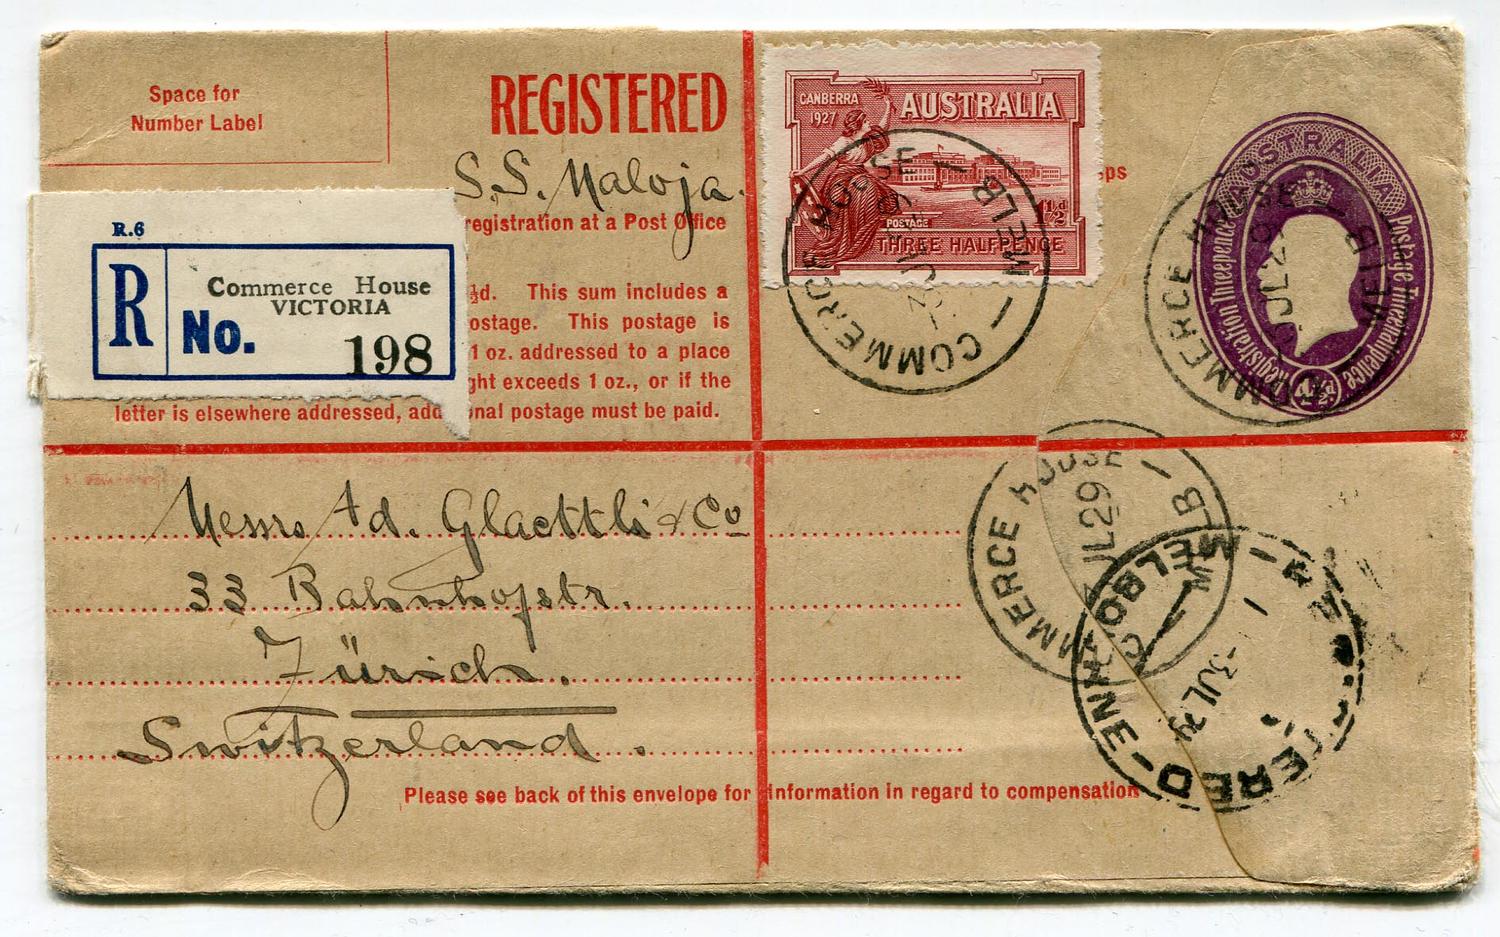 Space for
Number Label
REGISTERED
S.S. Maloja.
registration at a Post Office
R.6
R
Commerce House
VICTORIA
No. 198
½d. This sum includes a
ostage. This postage is
1 oz. addressed to a place
ght exceeds 1 oz., or if the
letter is elsewhere addressed, add nal postage must be paid.
CANBERRA
1927
AUSTRALIA
POSTAGE
1½d
THREE HALFPENCE
COMMERCE HOUSE — MELB —
ps
AUSTRALIA
Postage Three halfpence
Registration Threepence
4½d
COMMERCE HOUSE — MELB
JL 29
MMERCE HOUSE — MELB
JL 29
MELBOURNE
TERED
3 JL 29
Messrs Ad. Glaettli & Co
33 Bahnhofstr.
Zürich.
Switzerland.
Please see back of this envelope for information in regard to compensation